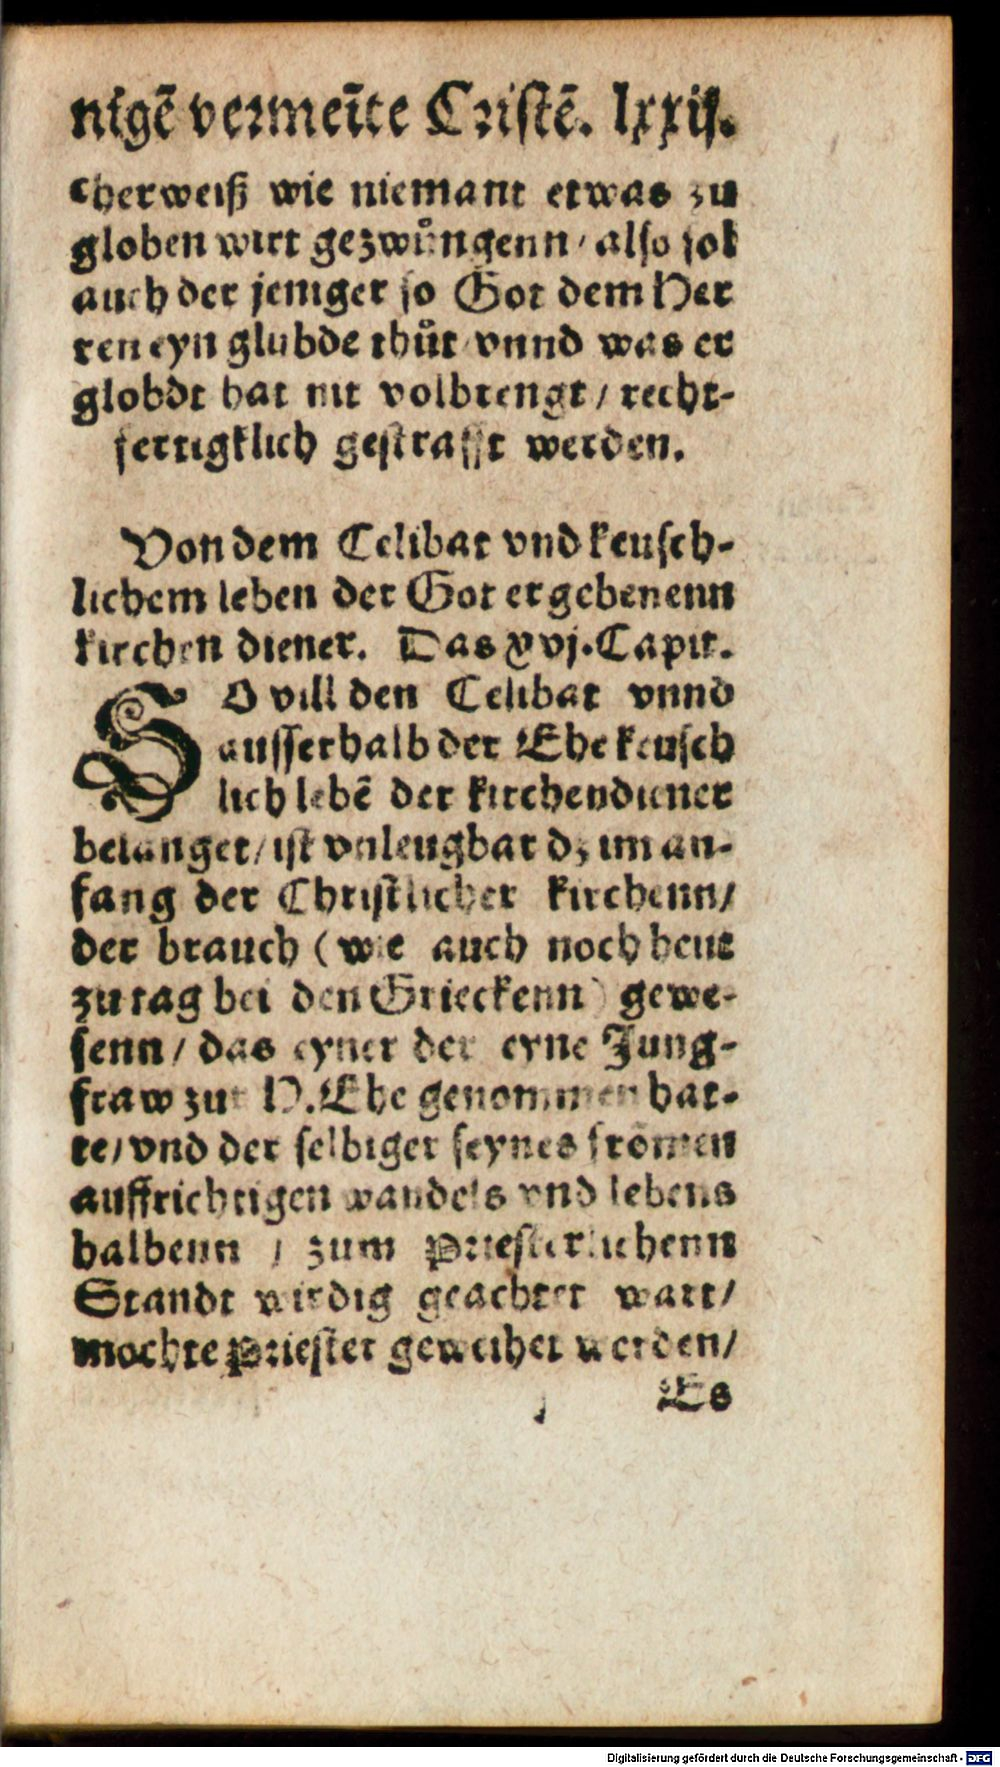 nigē vermeīte Cristē. lxxij.
cherweiß wie niemant etwas zu
globen wirt gezwůngenn / also sol
auch der jeniger so Got dem Her
ren eyn glubde thůt vnnd was er
globdt hat nit volbrengt / recht-
fertigklich gestrafft werden.
Von dem Celibat vnd keusch-
lichem leben der Got ergebenenn
kirchen diener. Das xvj. Capit.
SO vill den Celibat vnnd
ausserhalb der Ehe keusch
lich lebē der kirchendiener
belanget / ist vnleugbar dz im an-
fang der Christlicher kirchenn /
der brauch ( wie auch noch heut
zu tag bei den Grieckenn ) gewe-
senn / das eyner der eyne Jung-
fraw zur H. Ehe genommen hat-
te / vnd der selbiger seynes frōmen
auffrichtigen wandels vnd lebens
halbenn / zum Priesterlichenn
Standt wirdig geachtet wart /
mochte Priester geweihet werden /
Es
Digitalisierung gefördert durch die Deutsche Forschungsgemeinschaft - DFG